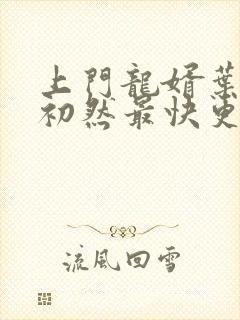 上門龍婿葉
初然最快更
流風回雪